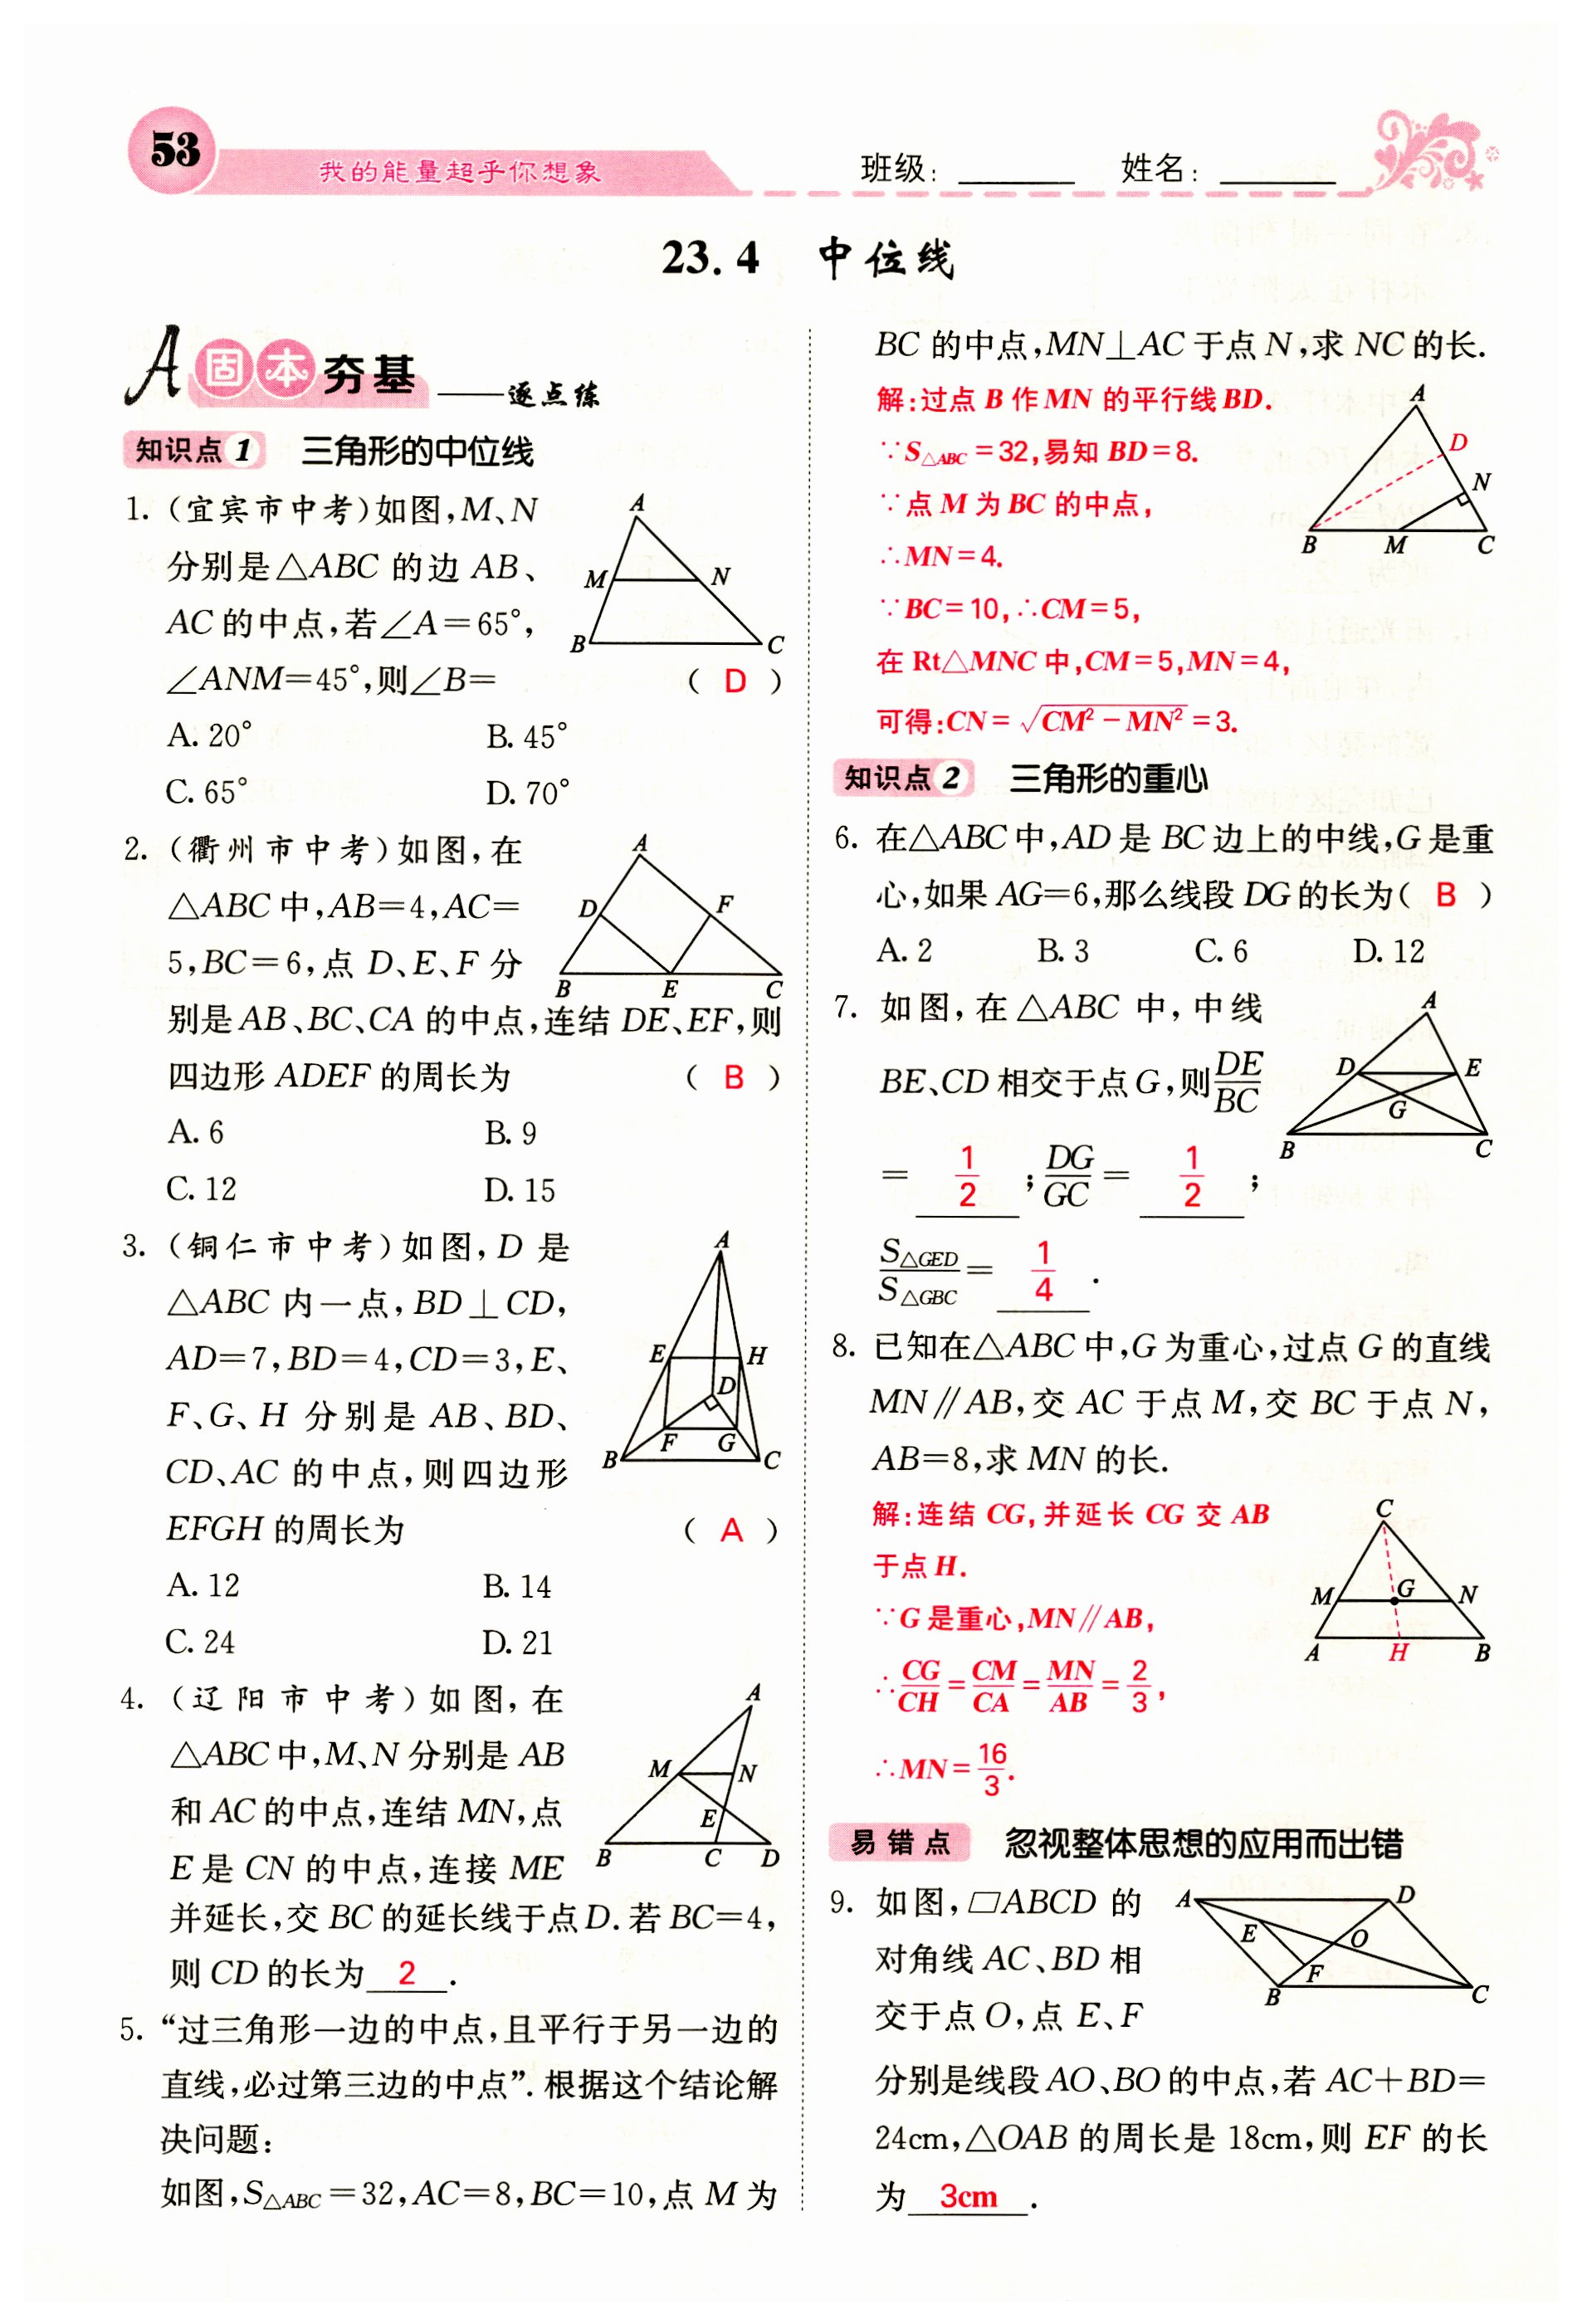 53
我的能量超乎你想象
班级：______ 姓名：______
23.4 中位线
A 固本夯基 ——逐点练
知识点1 三角形的中位线
1.（宜宾市中考）如图,M、N
分别是△ABC 的边 AB、
AC 的中点,若∠A=65°,
∠ANM=45°,则∠B= （ D ）
A. 20° B. 45°
C. 65° D. 70°
A
M N
B C
2.（衢州市中考）如图,在
△ABC 中,AB=4,AC=
5,BC=6,点 D、E、F 分
别是 AB、BC、CA 的中点,连结 DE、EF,则
四边形 ADEF 的周长为 （ B ）
A. 6 B. 9
C. 12 D. 15
A
D F
B E C
3.（铜仁市中考）如图,D 是
△ABC 内一点,BD⊥CD,
AD=7,BD=4,CD=3,E、
F、G、H 分别是 AB、BD、
CD、AC 的中点,则四边形
EFGH 的周长为 （ A ）
A. 12 B. 14
C. 24 D. 21
A
E H
D
F G
B C
4.（辽阳市中考）如图,在
△ABC 中,M、N 分别是 AB
和 AC 的中点,连结 MN,点
E 是 CN 的中点,连接 ME
并延长,交 BC 的延长线于点 D.若 BC=4,
则 CD 的长为 2 .
A
M N
E
B C D
5.“过三角形一边的中点,且平行于另一边的
直线,必过第三边的中点”.根据这个结论解
决问题:
如图,S△ABC=32,AC=8,BC=10,点 M 为
BC 的中点,MN⊥AC 于点 N,求 NC 的长.
解:过点 B 作 MN 的平行线 BD.
∵S△ABC=32,易知 BD=8.
∵点 M 为 BC 的中点,
∴MN=4.
∵BC=10,∴CM=5,
在 Rt△MNC 中,CM=5,MN=4,
可得:CN=√(CM²-MN²)=3.
A
D
N
B M C
知识点2 三角形的重心
6. 在△ABC 中,AD 是 BC 边上的中线,G 是重
心,如果 AG=6,那么线段 DG 的长为（ B ）
A. 2 B. 3 C. 6 D. 12
7. 如图,在△ABC 中,中线
BE、CD 相交于点 G,则DE/BC
= 1/2 ;DG/GC= 1/2 ;
S△GED/S△GBC= 1/4 .
A
D E
G
B C
8. 已知在△ABC 中,G 为重心,过点 G 的直线
MN∥AB,交 AC 于点 M,交 BC 于点 N,
AB=8,求 MN 的长.
解:连结 CG,并延长 CG 交 AB
于点 H.
∵G 是重心,MN∥AB,
∴CG/CH=CM/CA=MN/AB=2/3,
∴MN=16/3.
C
M G N
A H B
易错点 忽视整体思想的应用而出错
9. 如图,▱ABCD 的
对角线 AC、BD 相
交于点 O,点 E、F
分别是线段 AO、BO 的中点,若 AC+BD=
24cm,△OAB 的周长是 18cm,则 EF 的长
为 3cm .
A D
E O
F
B C